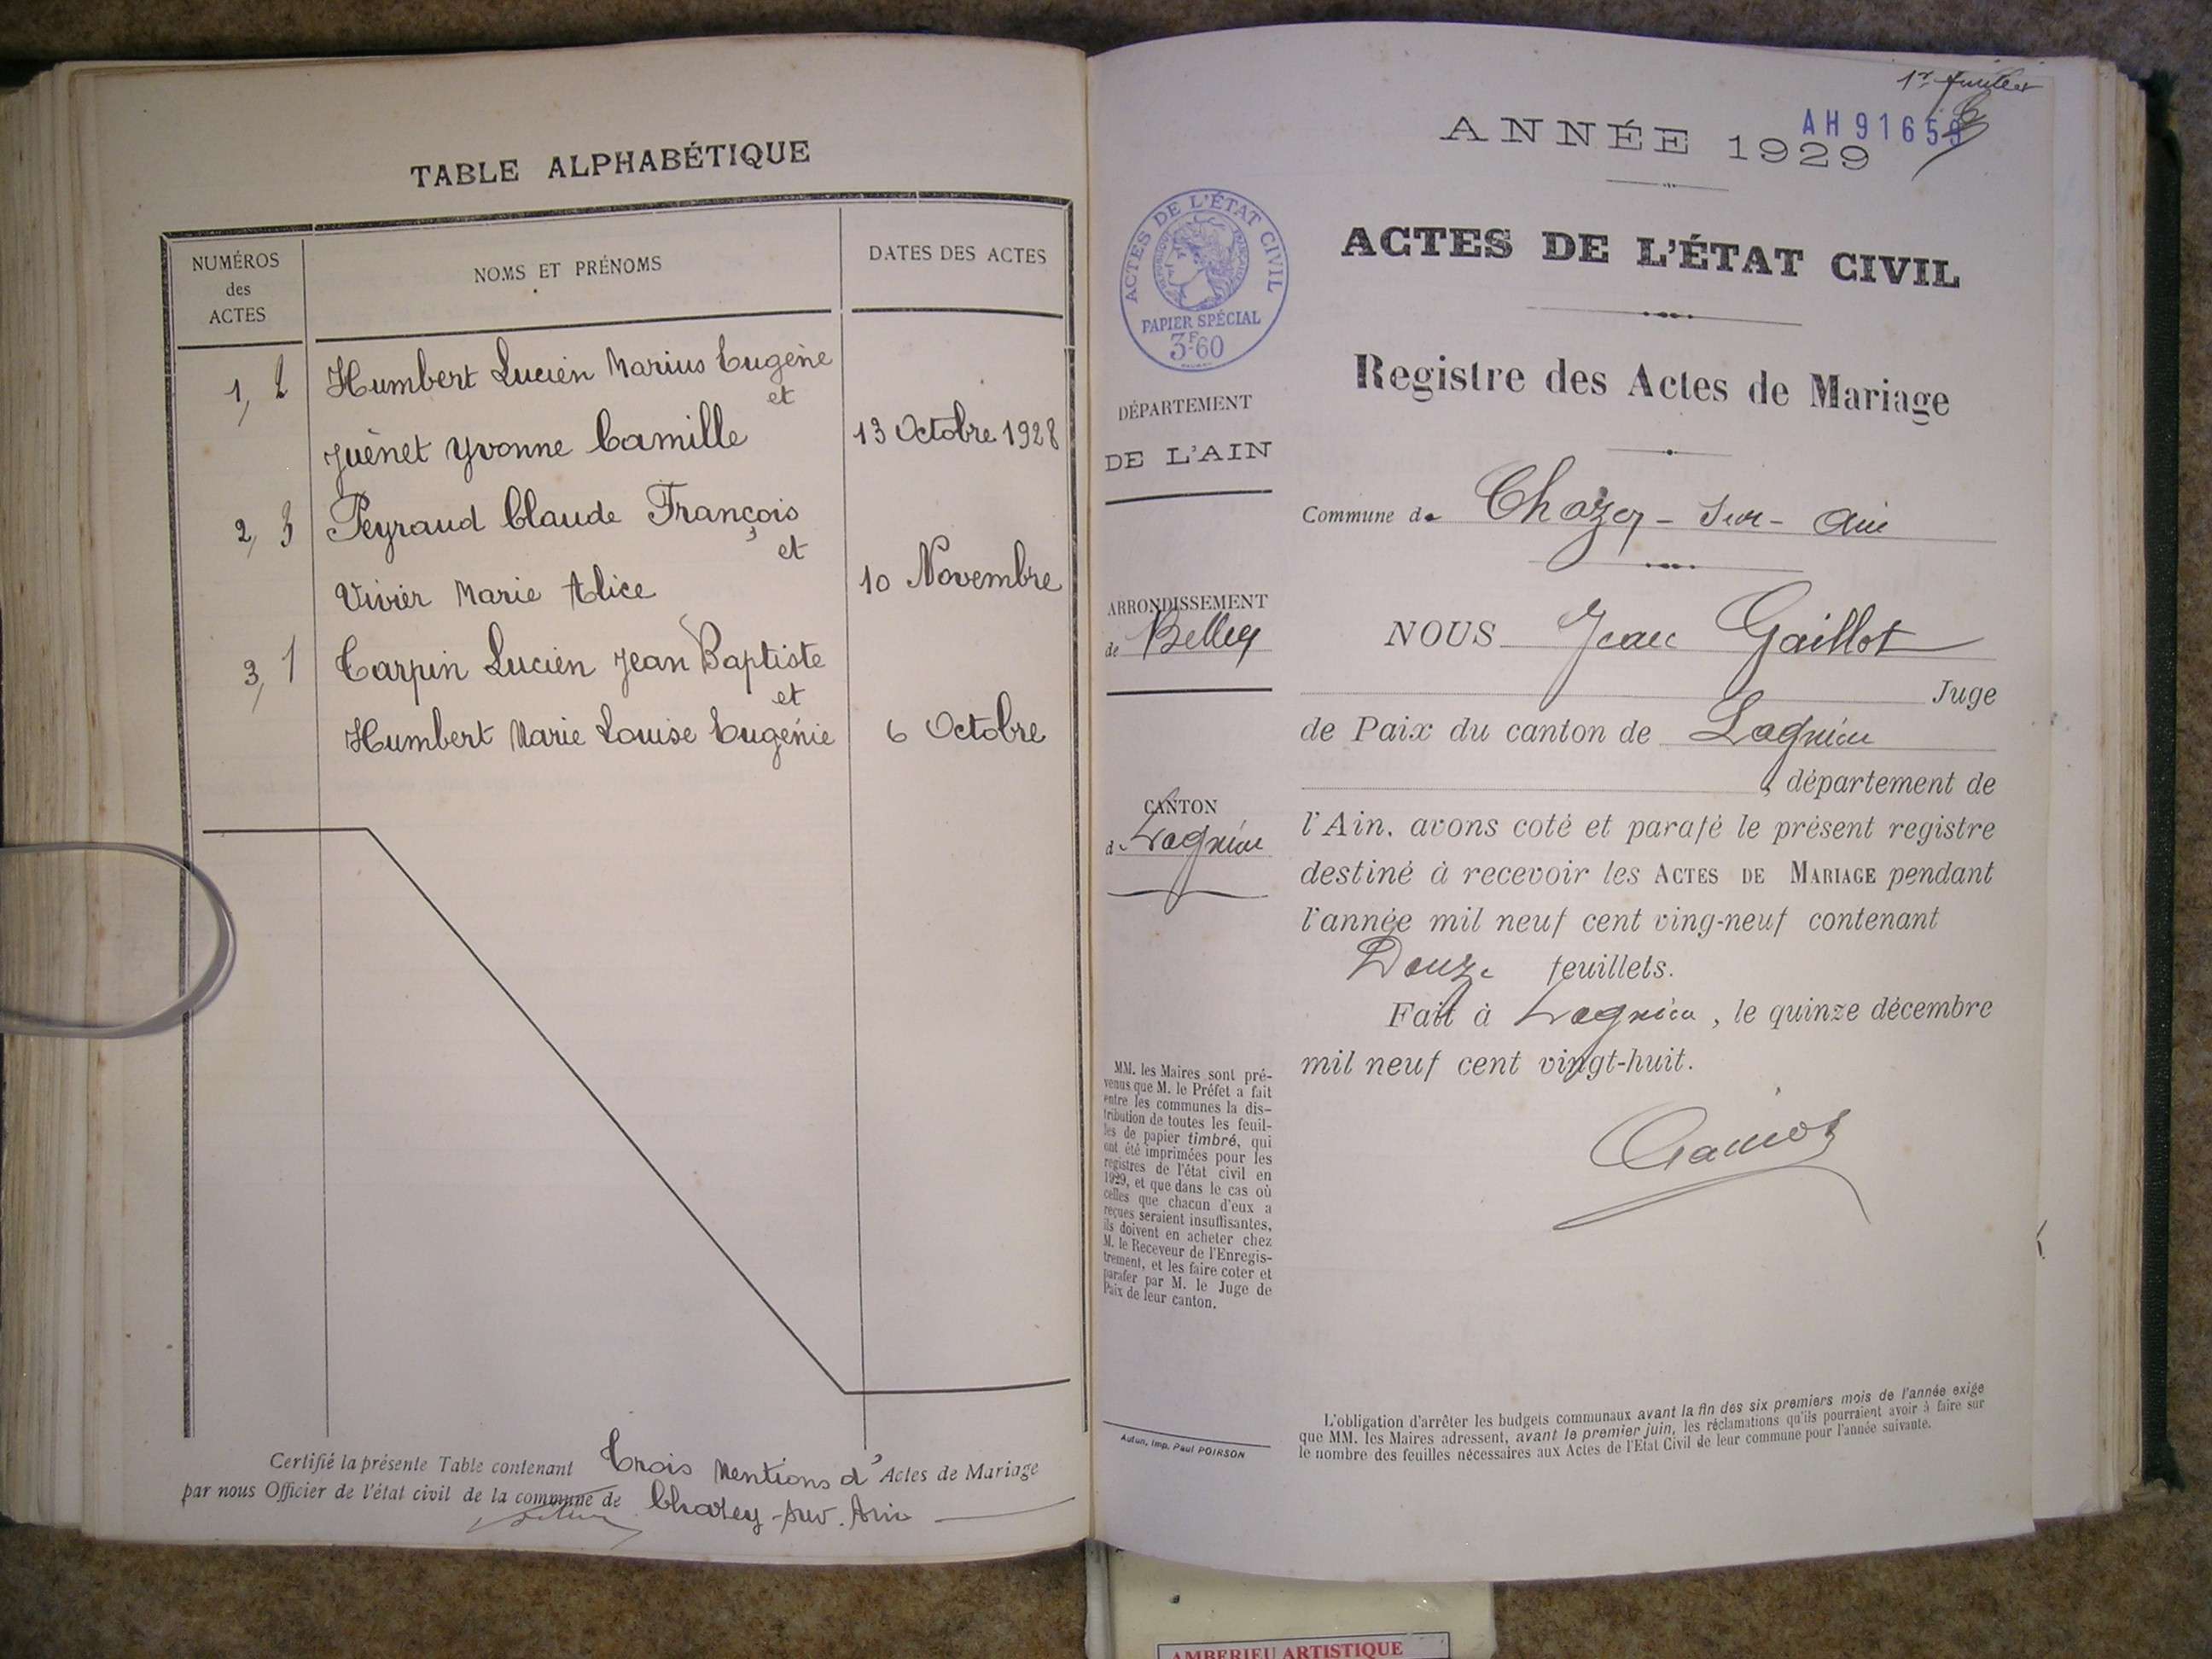 TABLE ALPHABÉTIQUE
NUMÉROS
des
ACTES
NOMS ET PRÉNOMS
DATES DES ACTES
1, 2 Humbert Lucien Marius Eugène
et
Juénet Yvonne Camille 13 Octobre 1928
2, 3 Peyraud Claude François
et
Vivier Marie Alice 10 Novembre
3, 1 Carpin Lucien Jean Baptiste
et
Humbert Marie Louise Eugénie 6 Octobre
Certifié la présente Table contenant Trois mentions d'Actes de Mariage
par nous Officier de l'état civil de la commune de Chazey-sur-Ain
1er feuillet
AH 9165
ANNÉE 1929
ACTES DE L'ÉTAT CIVIL
PAPIER SPÉCIAL
3F60
ACTES DE L'ÉTAT CIVIL
Registre des Actes de Mariage
DÉPARTEMENT
DE L'AIN
Commune de Chazey-sur-Ain
ARRONDISSEMENT
de Belley
CANTON
de Lagnieu
NOUS Jean Gaillot
Juge
de Paix du canton de Lagnieu
, département de
l'Ain, avons coté et parafé le présent registre
destiné à recevoir les ACTES DE MARIAGE pendant
l'année mil neuf cent ving-neuf contenant
Douze feuillets.
Fait à Lagnieu, le quinze décembre
mil neuf cent vingt-huit.
MM. les Maires sont pré-
venus que M. le Préfet a fait
entre les communes la dis-
tribution de toutes les feuil-
les de papier timbré, qui
ont été imprimées pour les
registres de l'état civil en
1929, et que dans le cas où
celles que chacun d'eux a
reçues seraient insuffisantes,
ils doivent en acheter chez
M. le Receveur de l'Enregis-
trement, et les faire coter et
parafer par M. le Juge de
Paix de leur canton.
Autun, Imp. Paul POIRSON
L'obligation d'arrêter les budgets communaux avant la fin des six premiers mois de l'année exige
que MM. les Maires adressent, avant le premier juin, les réclamations qu'ils pourraient avoir à faire sur
le nombre des feuilles nécessaires aux Actes de l'Etat Civil de leur commune pour l'année suivante.
AMBERIEU ARTISTIQUE